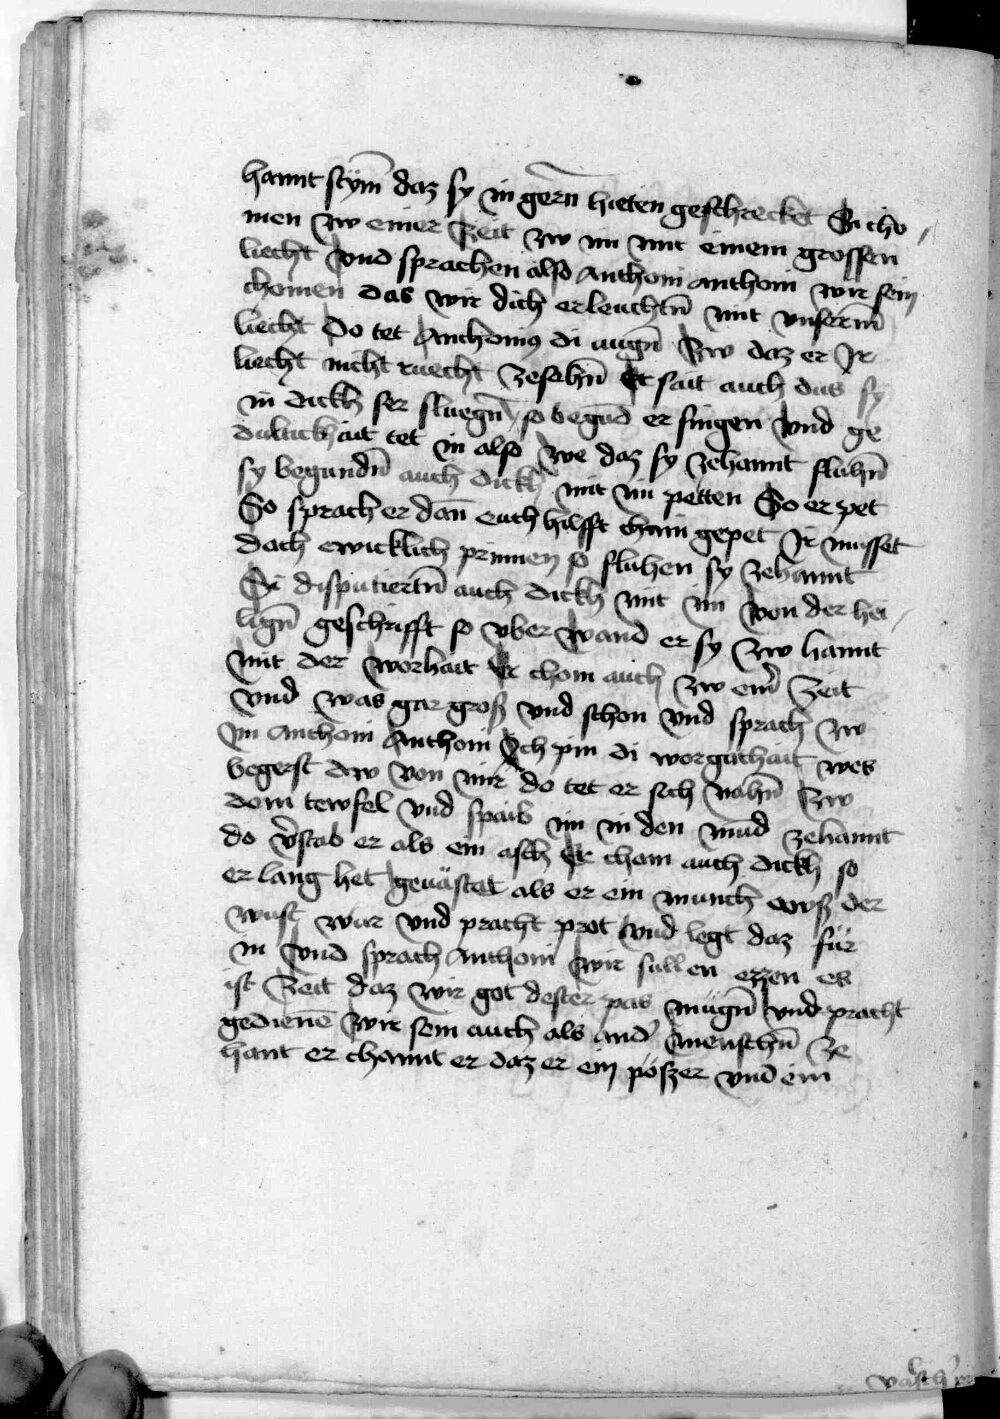 hannt stym̄ daz sy in gern̄ hieten geschrecket Si cho
men zw einer Zeit zw im mit einem grossen
liecht vnd sprachen also Anthoni anthoni wir sein
chomen das wir dich erleuchtn̄ mit vnserm̄
liecht Do tet Anthonius di augn̄ Zw daz er Jr
liecht nicht ruecht zesehn̄ Er sait auch das sy
in dickh ser sluegn̄ so begūd er singen vnd ge
dultickhait tet in also we daz sy zehannt fluhn̄
sy begundn̄ auch dickh mit im petten So er pet
So sprach er dan̄ euch hilfft chain gepet Jr musset
doch ewicklich prinnen so fluhen sy zehannt
Si disputiertn̄ auch dickh mit im von der hei
lign̄ geschrifft so vber wand er sy zw hannt
mit der worhait Er chom auch zw em̄ Zeit
vnd was gar groß vnd schon vnd sprach zw
im Anthoni Anthoni Jch pin di worgathait wes
begerst dw von mir do tet er sich nahn̄ Zw
dem tewfel vnd spaib im in den mūd zehannt
do v̄stab er als ein asch Er chom auch dickh so
er lang het geuästat als er ein munch aws der
wüst wär vnd pracht prot vnd legt daz für
in vnd sprach Anthoni wir sullen ezzen es
ist Zeit daz wir got dester pas mügn̄ vnd pracht
gedienē wir sein auch als and̄ menschn̄ Ze
hant er channt er daz er ein pöszer vnd ein